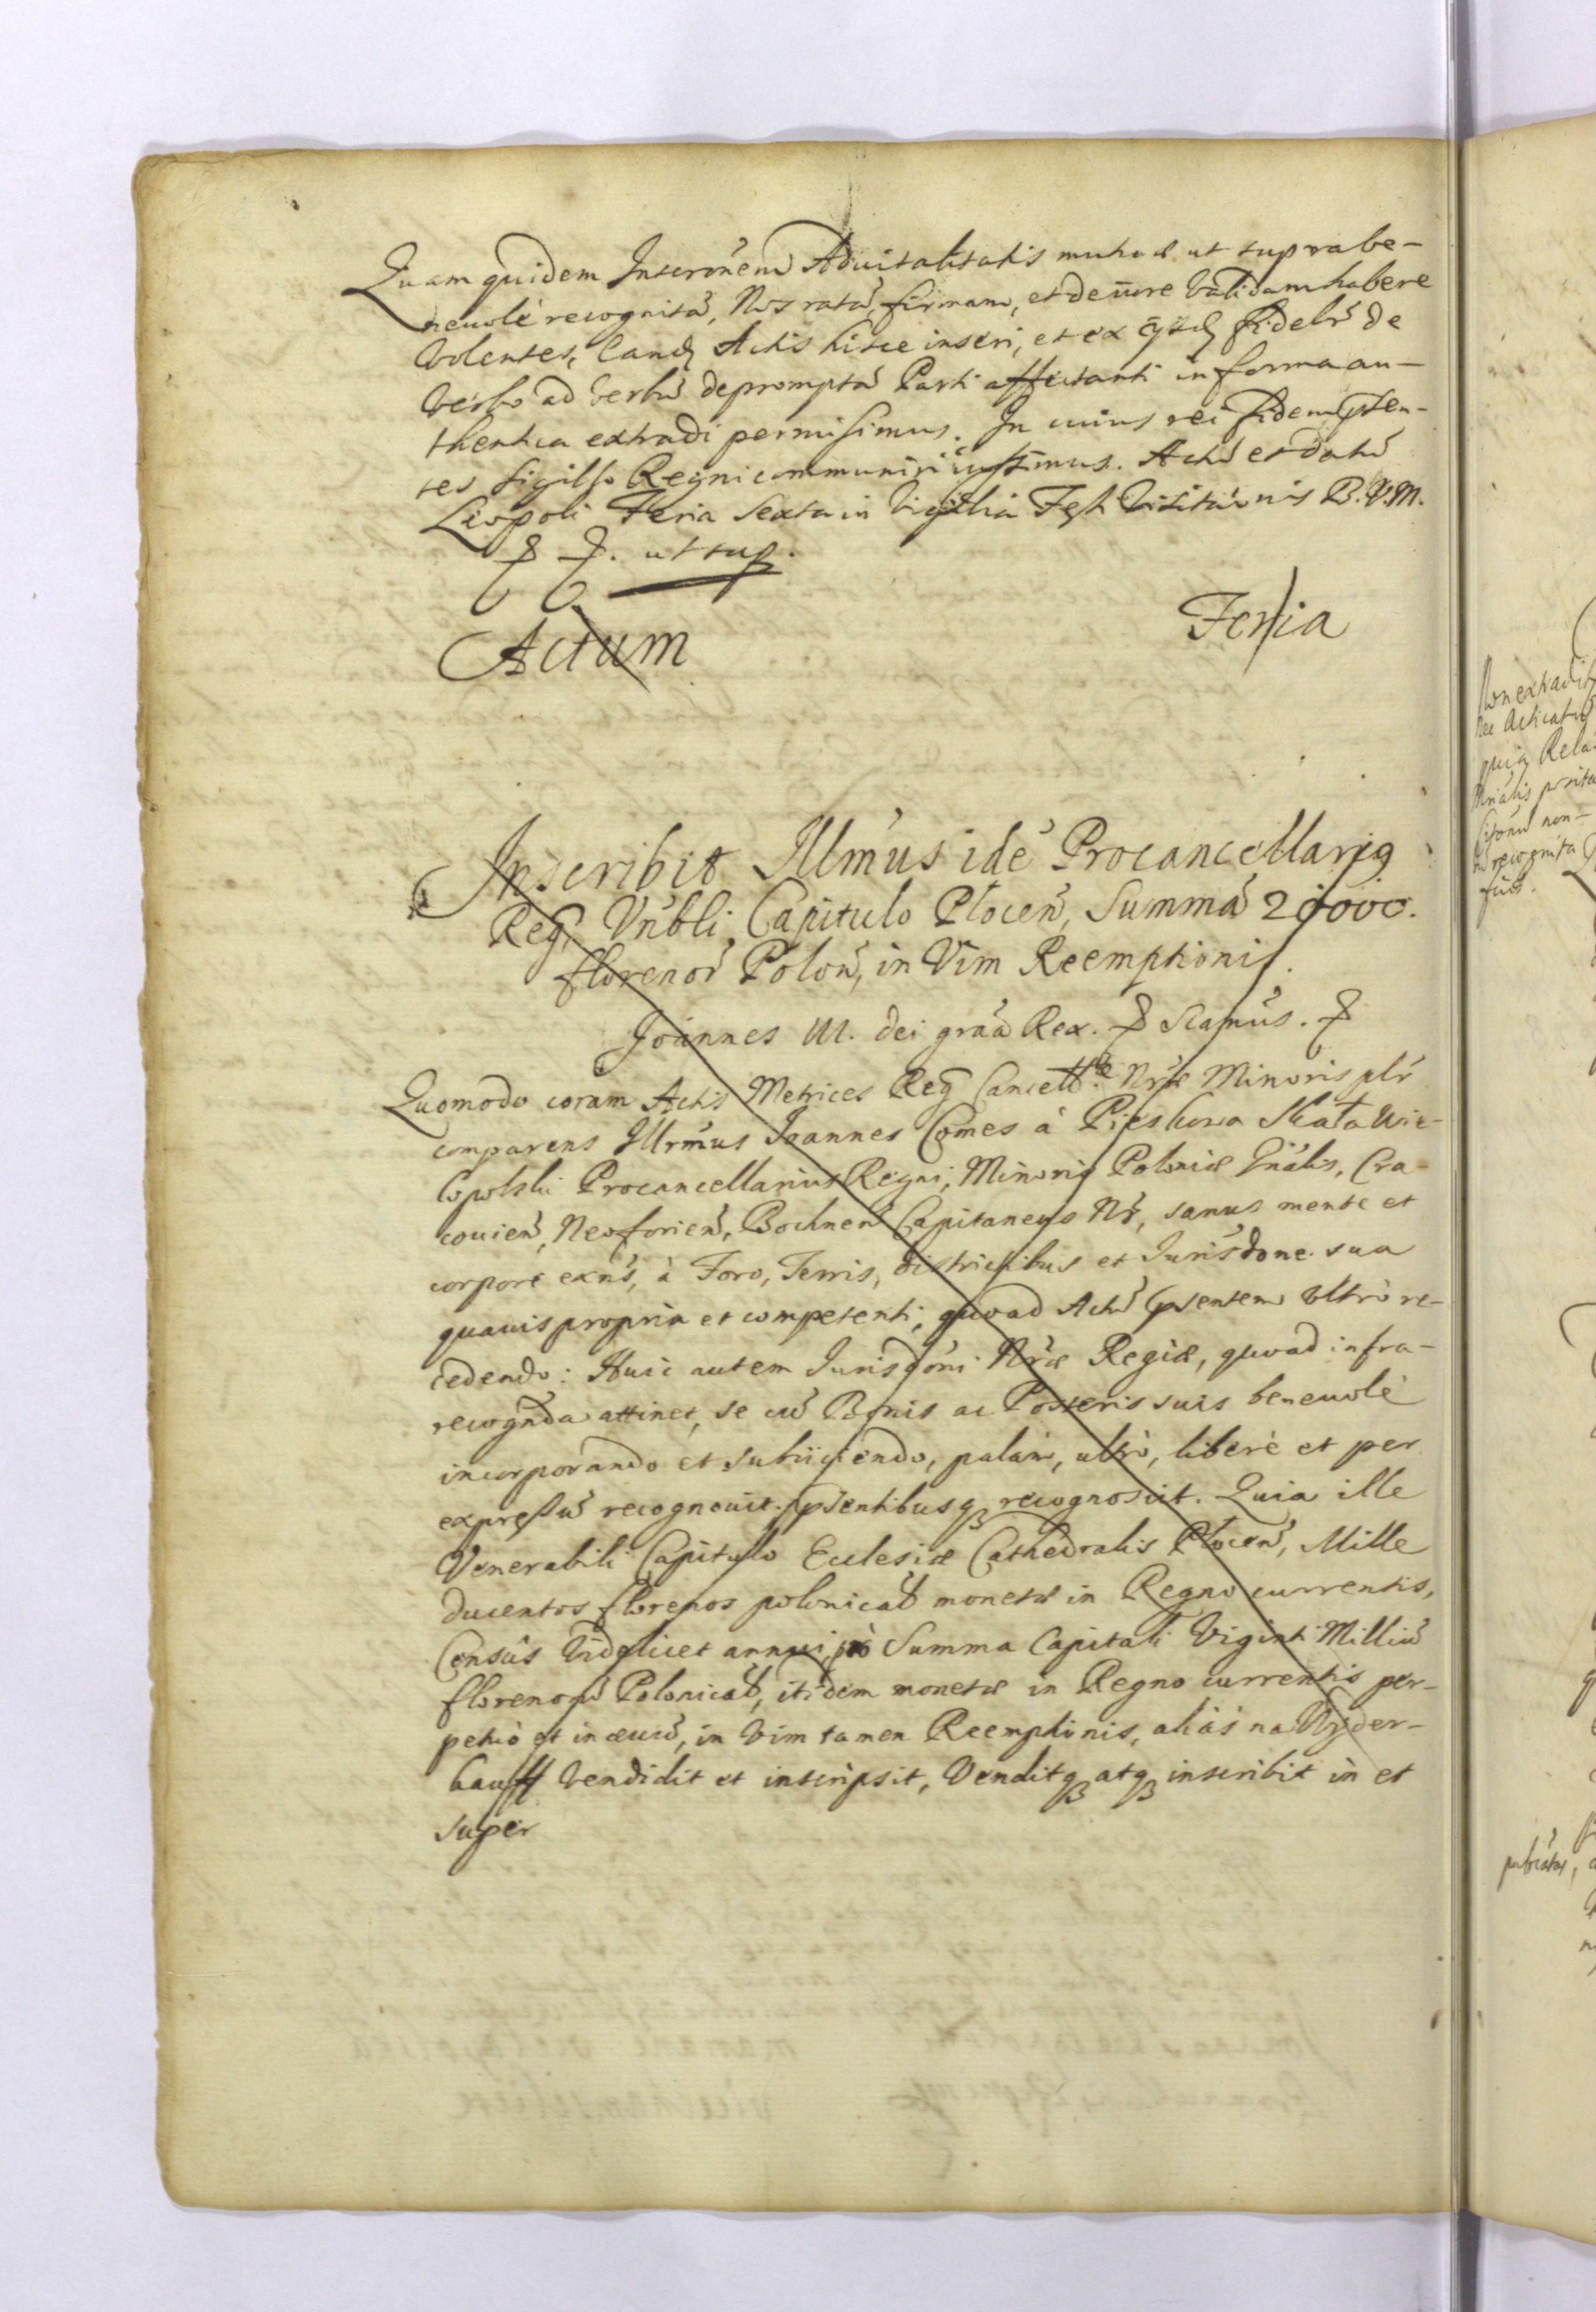 Quam quidem Inscrōnem Aduitalitatis mutuæ ut supra be-
neuole recognitā, Nos ratā, firmam, et de iure validam habere
volentes, eandē Actis hisce inseri, et ex ijsdē fidelr̄ de
verbo ad verbū depromptā Parti affectanti in forma au-
thentica extradi permisimus. In cuius rei fidem p̄sen-
tes sigillo Regni communiri iussimus. Actū et datū
Leopoli Feria Sexta in Vigilia Festi Visitāōnis B. V. M.
ut sup.
Actum
Feria
Inscribit Illm̄us idē Procancellarig
Regi Vn̄bli Capitulo Plocen̄, Summā 20000.
florenor̄ Polon̄, in Vim Reemptionis.
Joannes III. dei grā̄ Rex. Scamūs.
Quomodo coram Actis Metrices Regi Cancell. Nrǣ Minoris plr̄
comparens Illrm̄us Joannes Comes à Pieskowa Skała Wie-
lopolski Procancellarius Regni, Minoris Poloniæ Gn̄alis, Cra-
couien̄, Neoforien̄, Bochnen̄ Capitaneus Nr̄, sanus mente et
corpore exn̄s, à Foro, Terris, districtibus et Jurisdōne sua
quauis propria et competenti, quoad Actū p̄sentem vltrò re-
cedendo: Huic autem Jurisdōni Nrǣ Regiæ, quoad infra-
recogn̄da attinet, se cū Bonis ac Posteris suis beneuolè
incorporando et subijciendo, palàm, ultrò, liberè et per
expressū recognouit. p̄sentibusq recognoscit. Quia ille
Venerabili Capitulo Ecclesiæ Cathedralis Plocen̄, Mille
ducentos florenos polonical̄ monetæ in Regno currentis,
Censûs videlicet annui, prò Summa Capitali Viginti Milliū
florenorū Polonical̄, itidem monetæ in Regno currentis per-
petuò et in æuū, in vim tamen Reemptionis, aliàs na Wyder-
kauff vendidit et inscripsit, Venditq atq inscribit in et
super
Non extradit
nec Acticatū
quia Rela
non-
recognita
fuit.